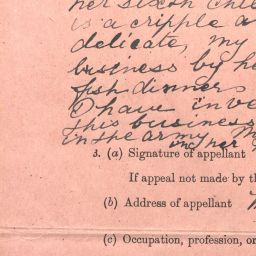 her sixth chil
is a cripple a
delicate, my
business by he
fish dinners
I have inve
this business
in the army M
inc her
3. (a) Signature of appellant
If appeal not made by th
(b) Address of appellant
(c) Occupation, profession, or